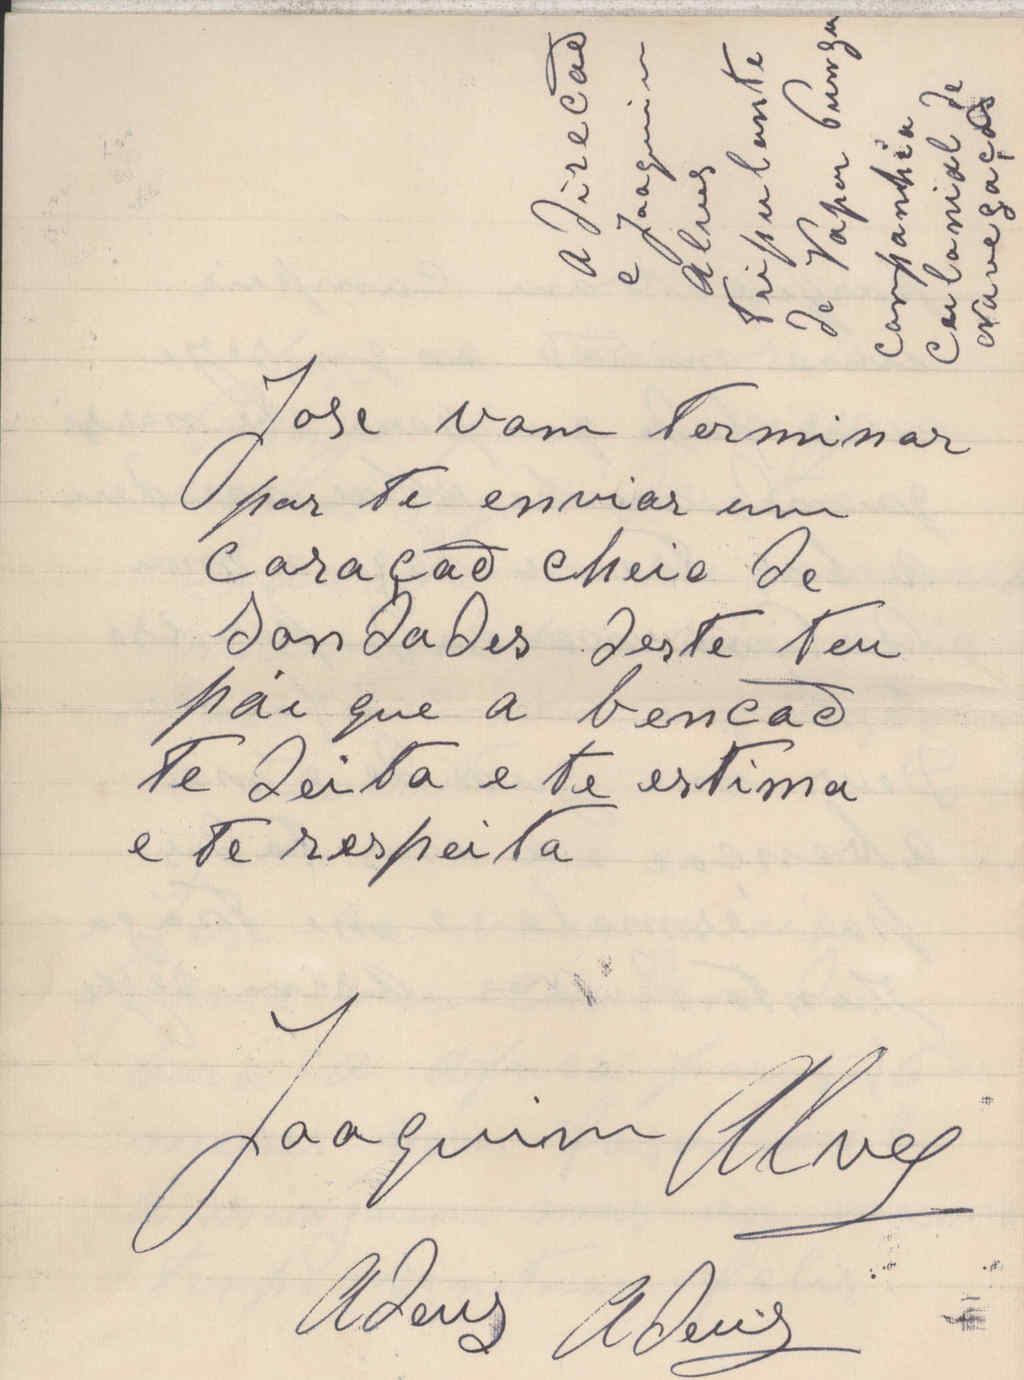 a direcão
e Joaquim
Alves
tripulante
do Vapor Bunga
companhia
Coilonial de
navegação
Jose vom terminar
por te enviar um
coração cheio de
Soudades deste teu
pái que a bencão
te deita e te estima
e te respeita
Joaquim Alves
Adeus Adeus